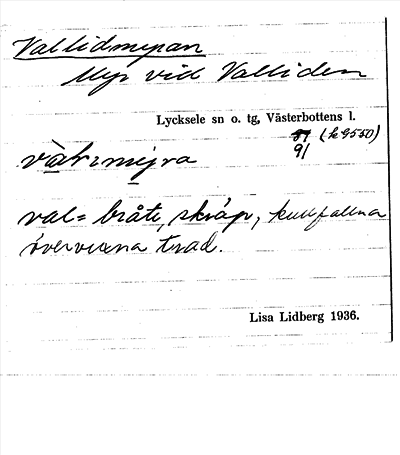 Vallidmyran
Myr vid Valliden
Lycksele sn o. tg, Västerbottens l.
91 (k 9550)
val = bråte, skräp, kullfallna
övervuxna träd.
Lisa Lidberg 1936.